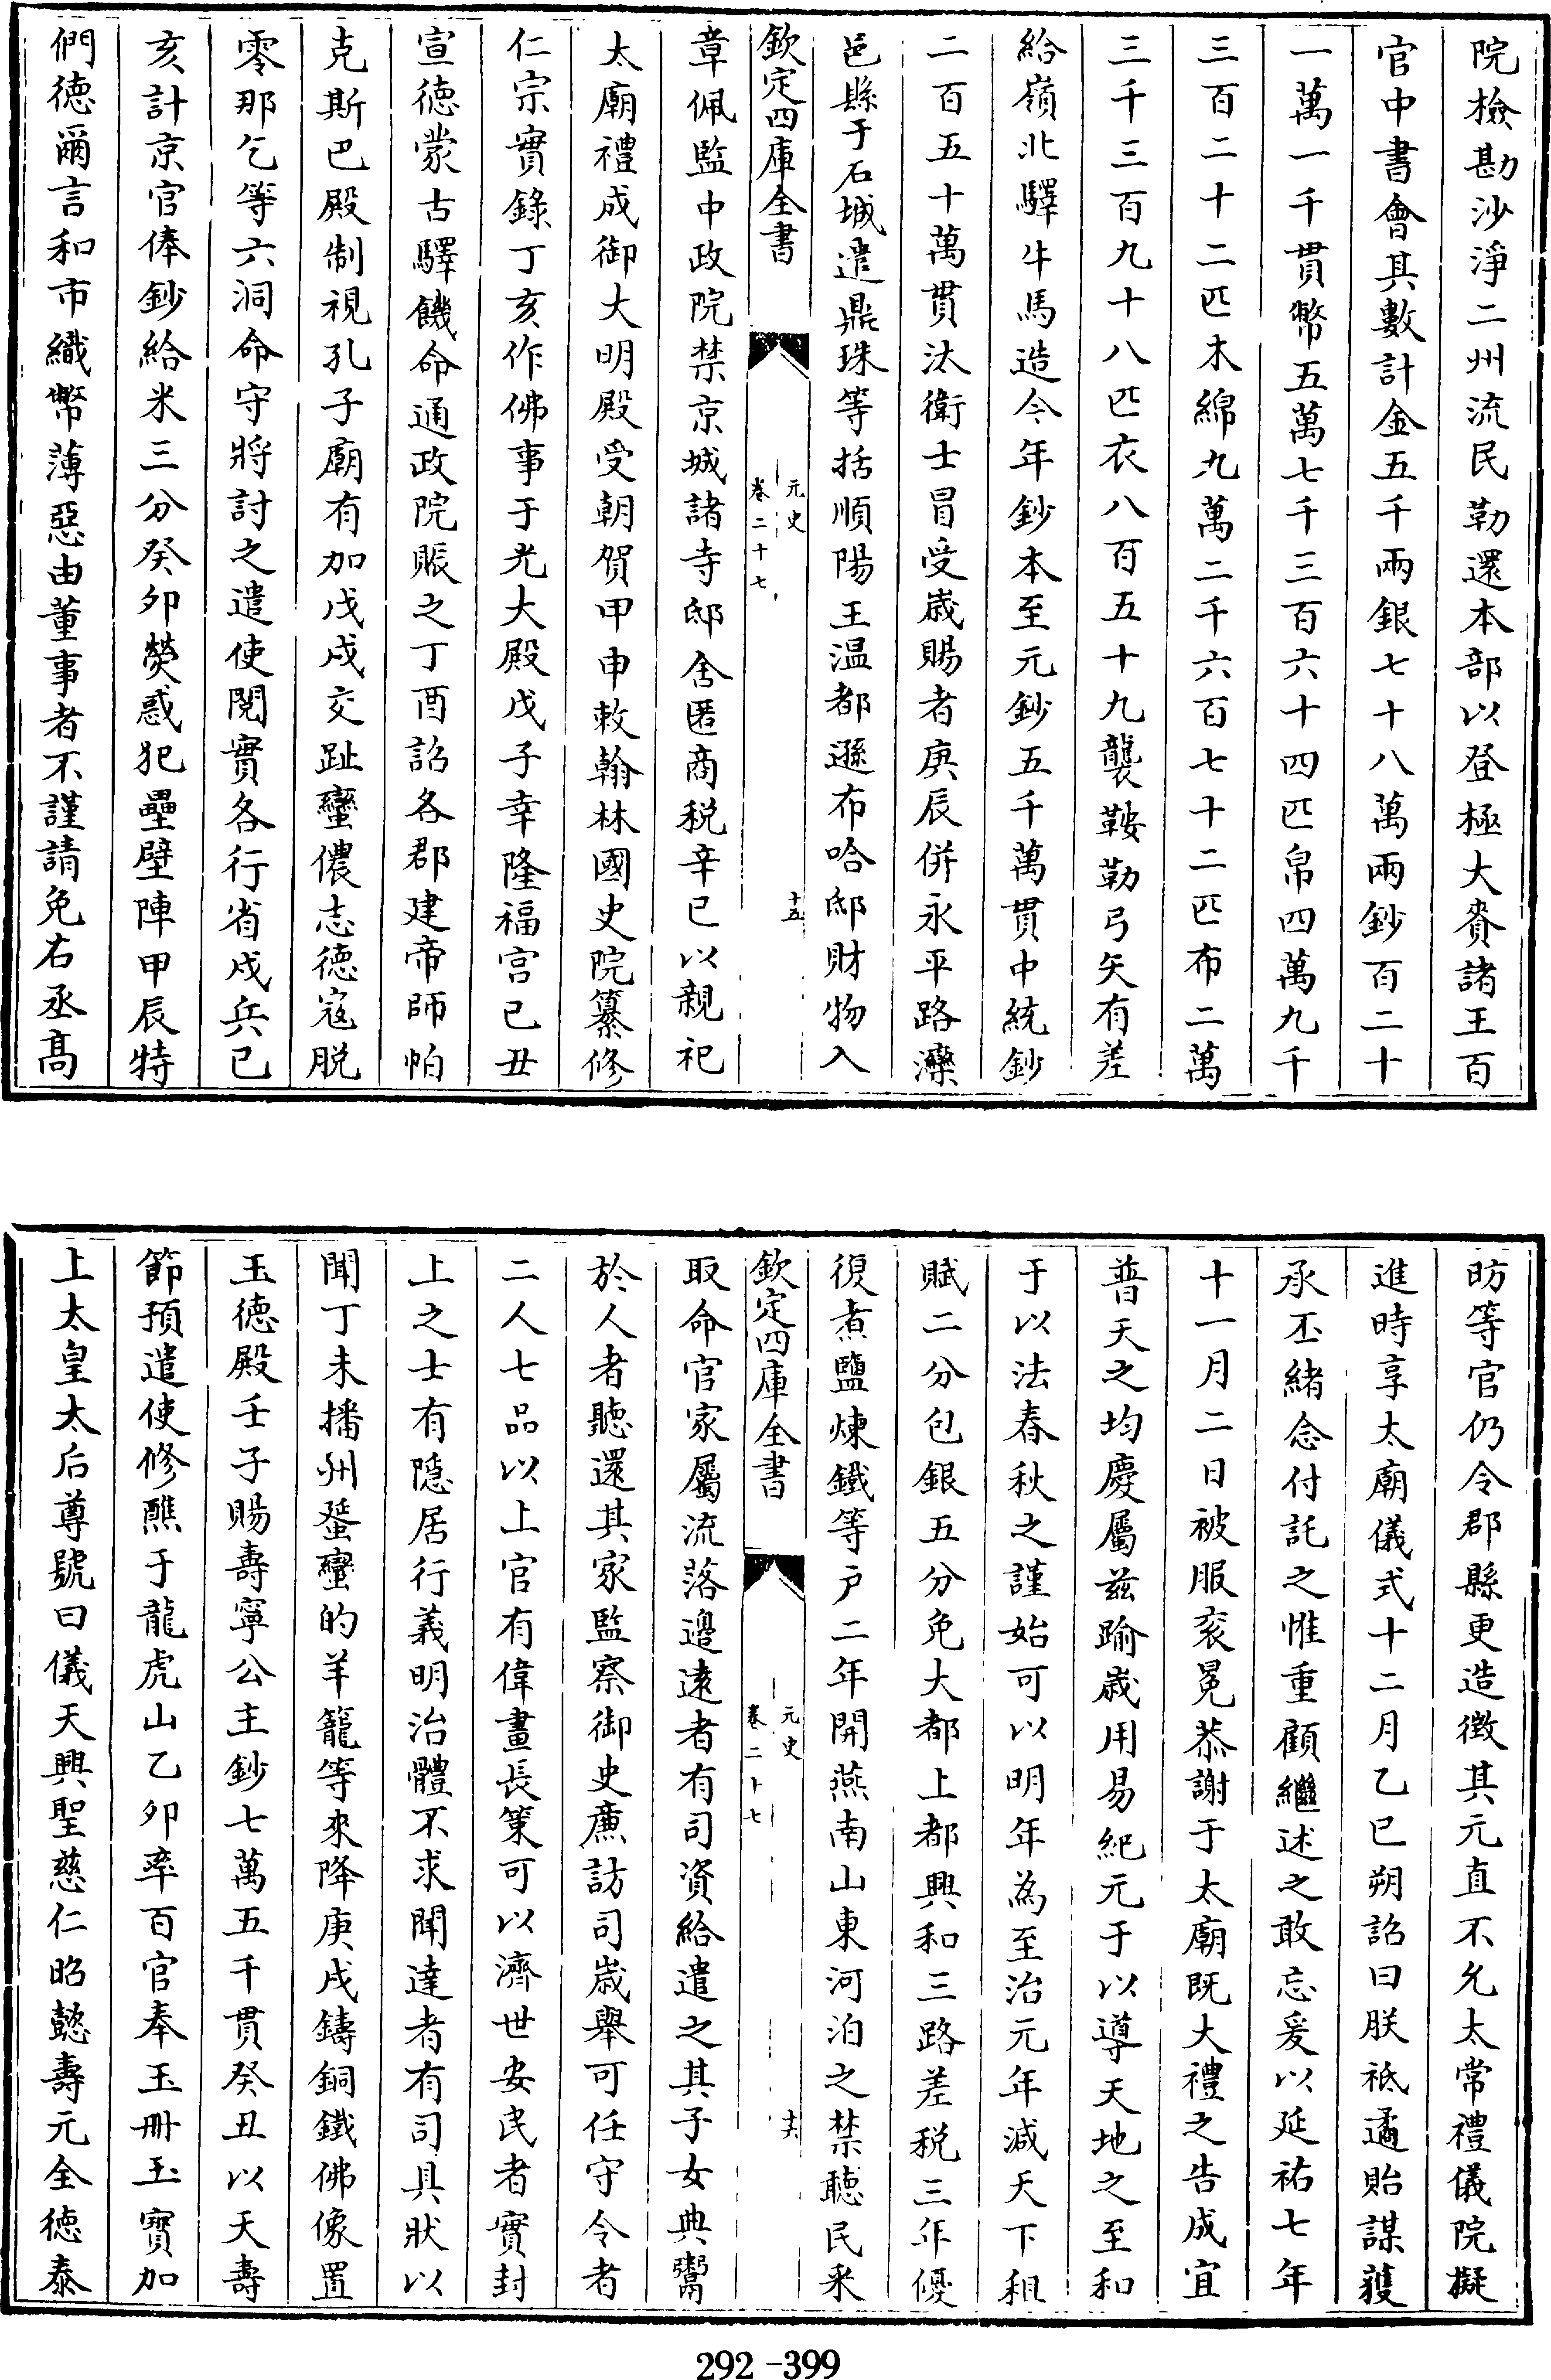 院檢勘沙淨二州流民勒還本部以登極大賚諸王百
官中書會其數計金五千兩銀七十八萬兩鈔百二十
一萬一千貫幣五萬七千三百六十四匹帛四萬九千
三百二十二匹木綿九萬二千六百七十二匹布二萬
三千三百九十八匹衣八百五十九襲鞍勒弓矢有差
給嶺北驛牛馬造今年鈔本至元鈔五千萬貫中統鈔
二百五十萬貫汰衛士冒受歲賜者庚辰併永平路灤
邑縣于石城遣鼎珠等括順陽王温都遜布哈邸財物入
欽定四庫全書
元史
卷二十七
十五
章佩監中政院禁京城諸寺邸舍匿商税辛巳以親祀
太廟禮成御大明殿受朝賀甲申敕翰林國史院纂修
仁宗實錄丁亥作佛事于光天殿戊子幸隆福宫已丑
宣徳蒙古驛饑命通政院賑之丁酉詔各郡建帝師帕
克斯巴殿制視孔子廟有加戊戌交趾蠻儂志徳寇脱
零那乞等六洞命守將討之遣使閱實各行省戍兵已
亥計京官俸鈔給米三分癸卯熒惑犯壘壁陣甲辰特
們徳爾言和市織幣薄惡由董事者不謹請免右丞髙
昉等官仍令郡縣更造徴其元直不允太常禮儀院擬
進時享太廟儀式十二月乙巳朔詔曰朕祗遹貽謀獲
承丕緒念付託之惟重顧繼述之敢忘爰以延祐七年
十一月二日被服衮冕恭謝于太廟既大禮之告成宜
普天之均慶屬兹踰歲用易紀元于以導天地之至和
于以法春秋之謹始可以明年為至治元年減天下租
賦二分包銀五分免大都上都興和三路差税三年優
復煮鹽煉鐵等户二年開燕南山東河泊之禁聽民采
欽定四庫全書
元史
卷二十七
十六
取命官家屬流落邊逺者有司資給遣之其子女典鬻
於人者聽還其家監察御史亷訪司歲舉可任守令者
二人七品以上官有偉畫長䇿可以濟世安民者實封
上之士有隠居行義明治體不求聞達者有司具狀以
聞丁未播州蜑蠻的羊籠等來降庚戌鑄銅鐵佛像置
玉徳殿壬子賜壽寧公主鈔七萬五千貫癸丑以天壽
節預遣使修醮于龍虎山乙卯率百官奉玉冊玉寶加
上太皇太后尊號曰儀天興聖慈仁昭懿壽元全徳泰
292-399